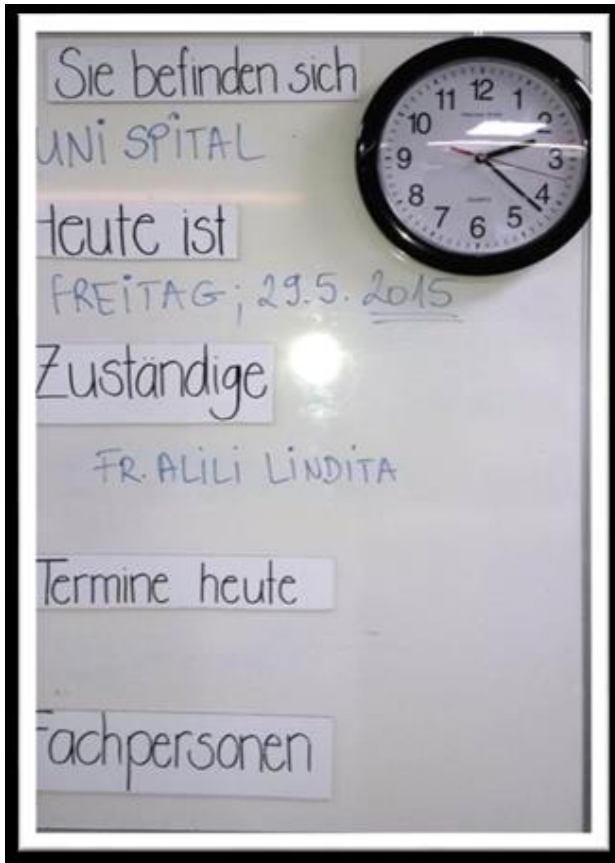 Sie befinden sich
UNI SPITAL
Heute ist
FREITAG; 29.5. 2015
Zuständige
FR. ALILI LINDITA
Termine heute
Fachpersonen
12
1
2
3
4
5
6
7
8
9
10
11
QUARTZ